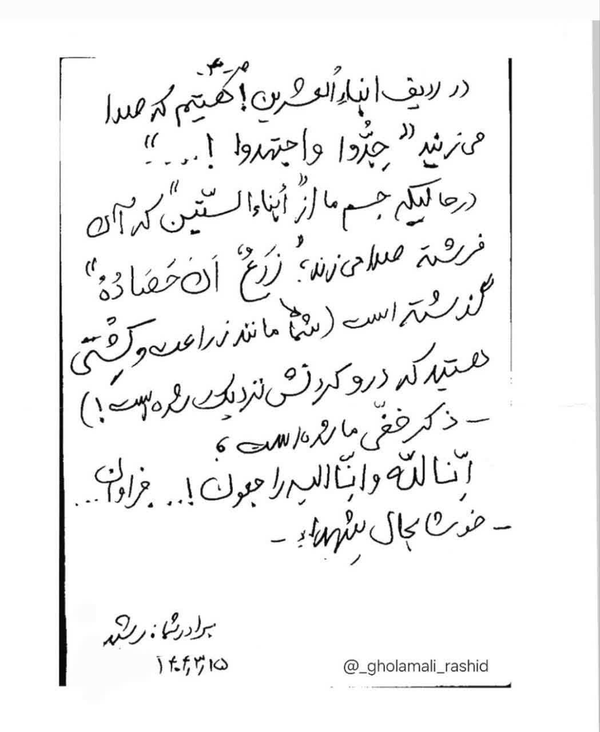 در ردیف ابناءُ العشرین! نیستیم که صدا
می‌زنند "جِدُّوا واجتهدوا !...."
درحالیکه جسم ما از "أبناءالستّین" که آن
فرشته صدا می‌زند؛ "زَرعٌ اَنَ حَصَادُهُ"
گذشته است (شما مانند زراعت و کِشتی
هستید که درو کردنش نزدیک شده است!)
– ذکر خفیّ ما شده است؛
اِنّا لله وانّا الیه راجعون!... فراوان...
– خوشا بحال شهداء –
برادر شما: رشید
۱۴۰۴,۳,۱۵
@_gholamali_rashid